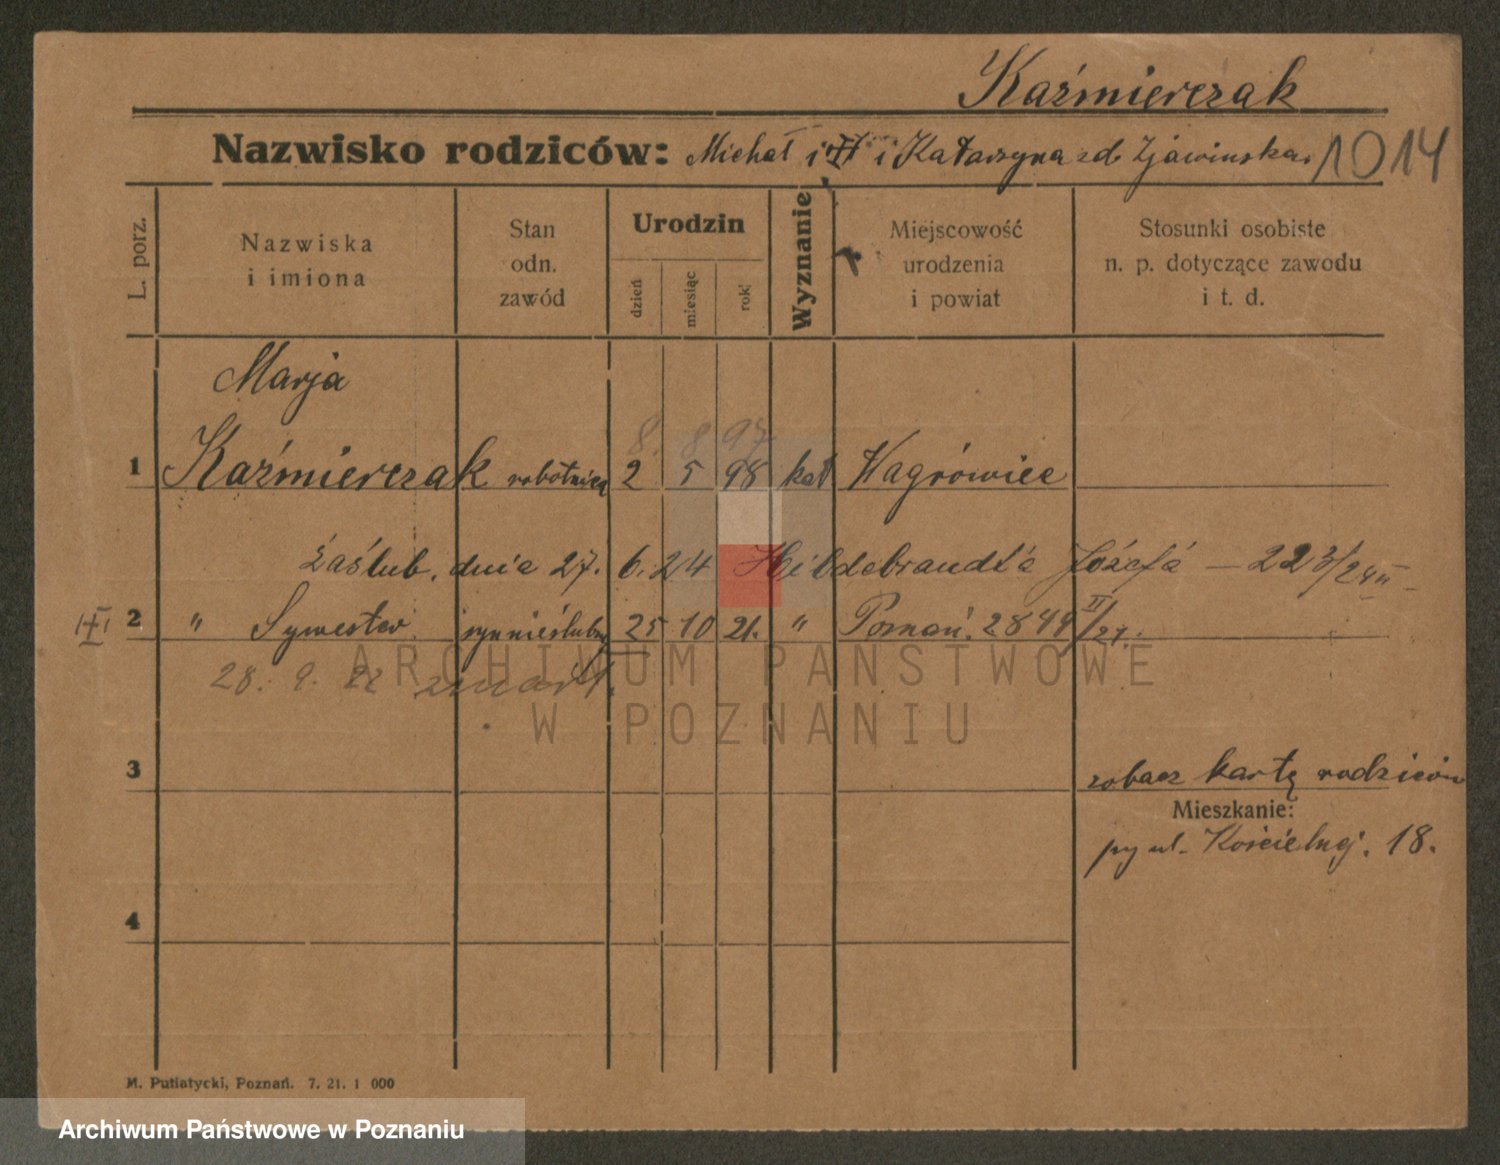 Kaźmierczak
Nazwisko rodziców: Michał i i Katarzyna zd. Zjawinska. 1014
L. porz.
Nazwiska i imiona
Stan odn. zawód
Urodzin
dzień
miesiąc
rok
Wyznanie
Miejscowość urodzenia i powiat
Stosunki osobiste n. p. dotyczące zawodu i t. d.
Marja
8. 8 97
1 Kaźmierczak robotnica 2 5 98 kat Wągrówiec
Zaślub. dnia 27. 6. 24 Hildebrandta Józefa — 223/24 II -
2 " Sywester syn nieślubny 25 10 21. " Poznań. 2849 II/21.
28. 9. 22 zmarł.
ARCHIWUM PAŃSTWOWE
W POZNANIU
3 zobacz kartę rodziców
Mieszkanie:
py ul. Kościelnej. 18.
4
M. Putiatycki, Poznań. 7. 21. 1 000
Archiwum Państwowe w Poznaniu